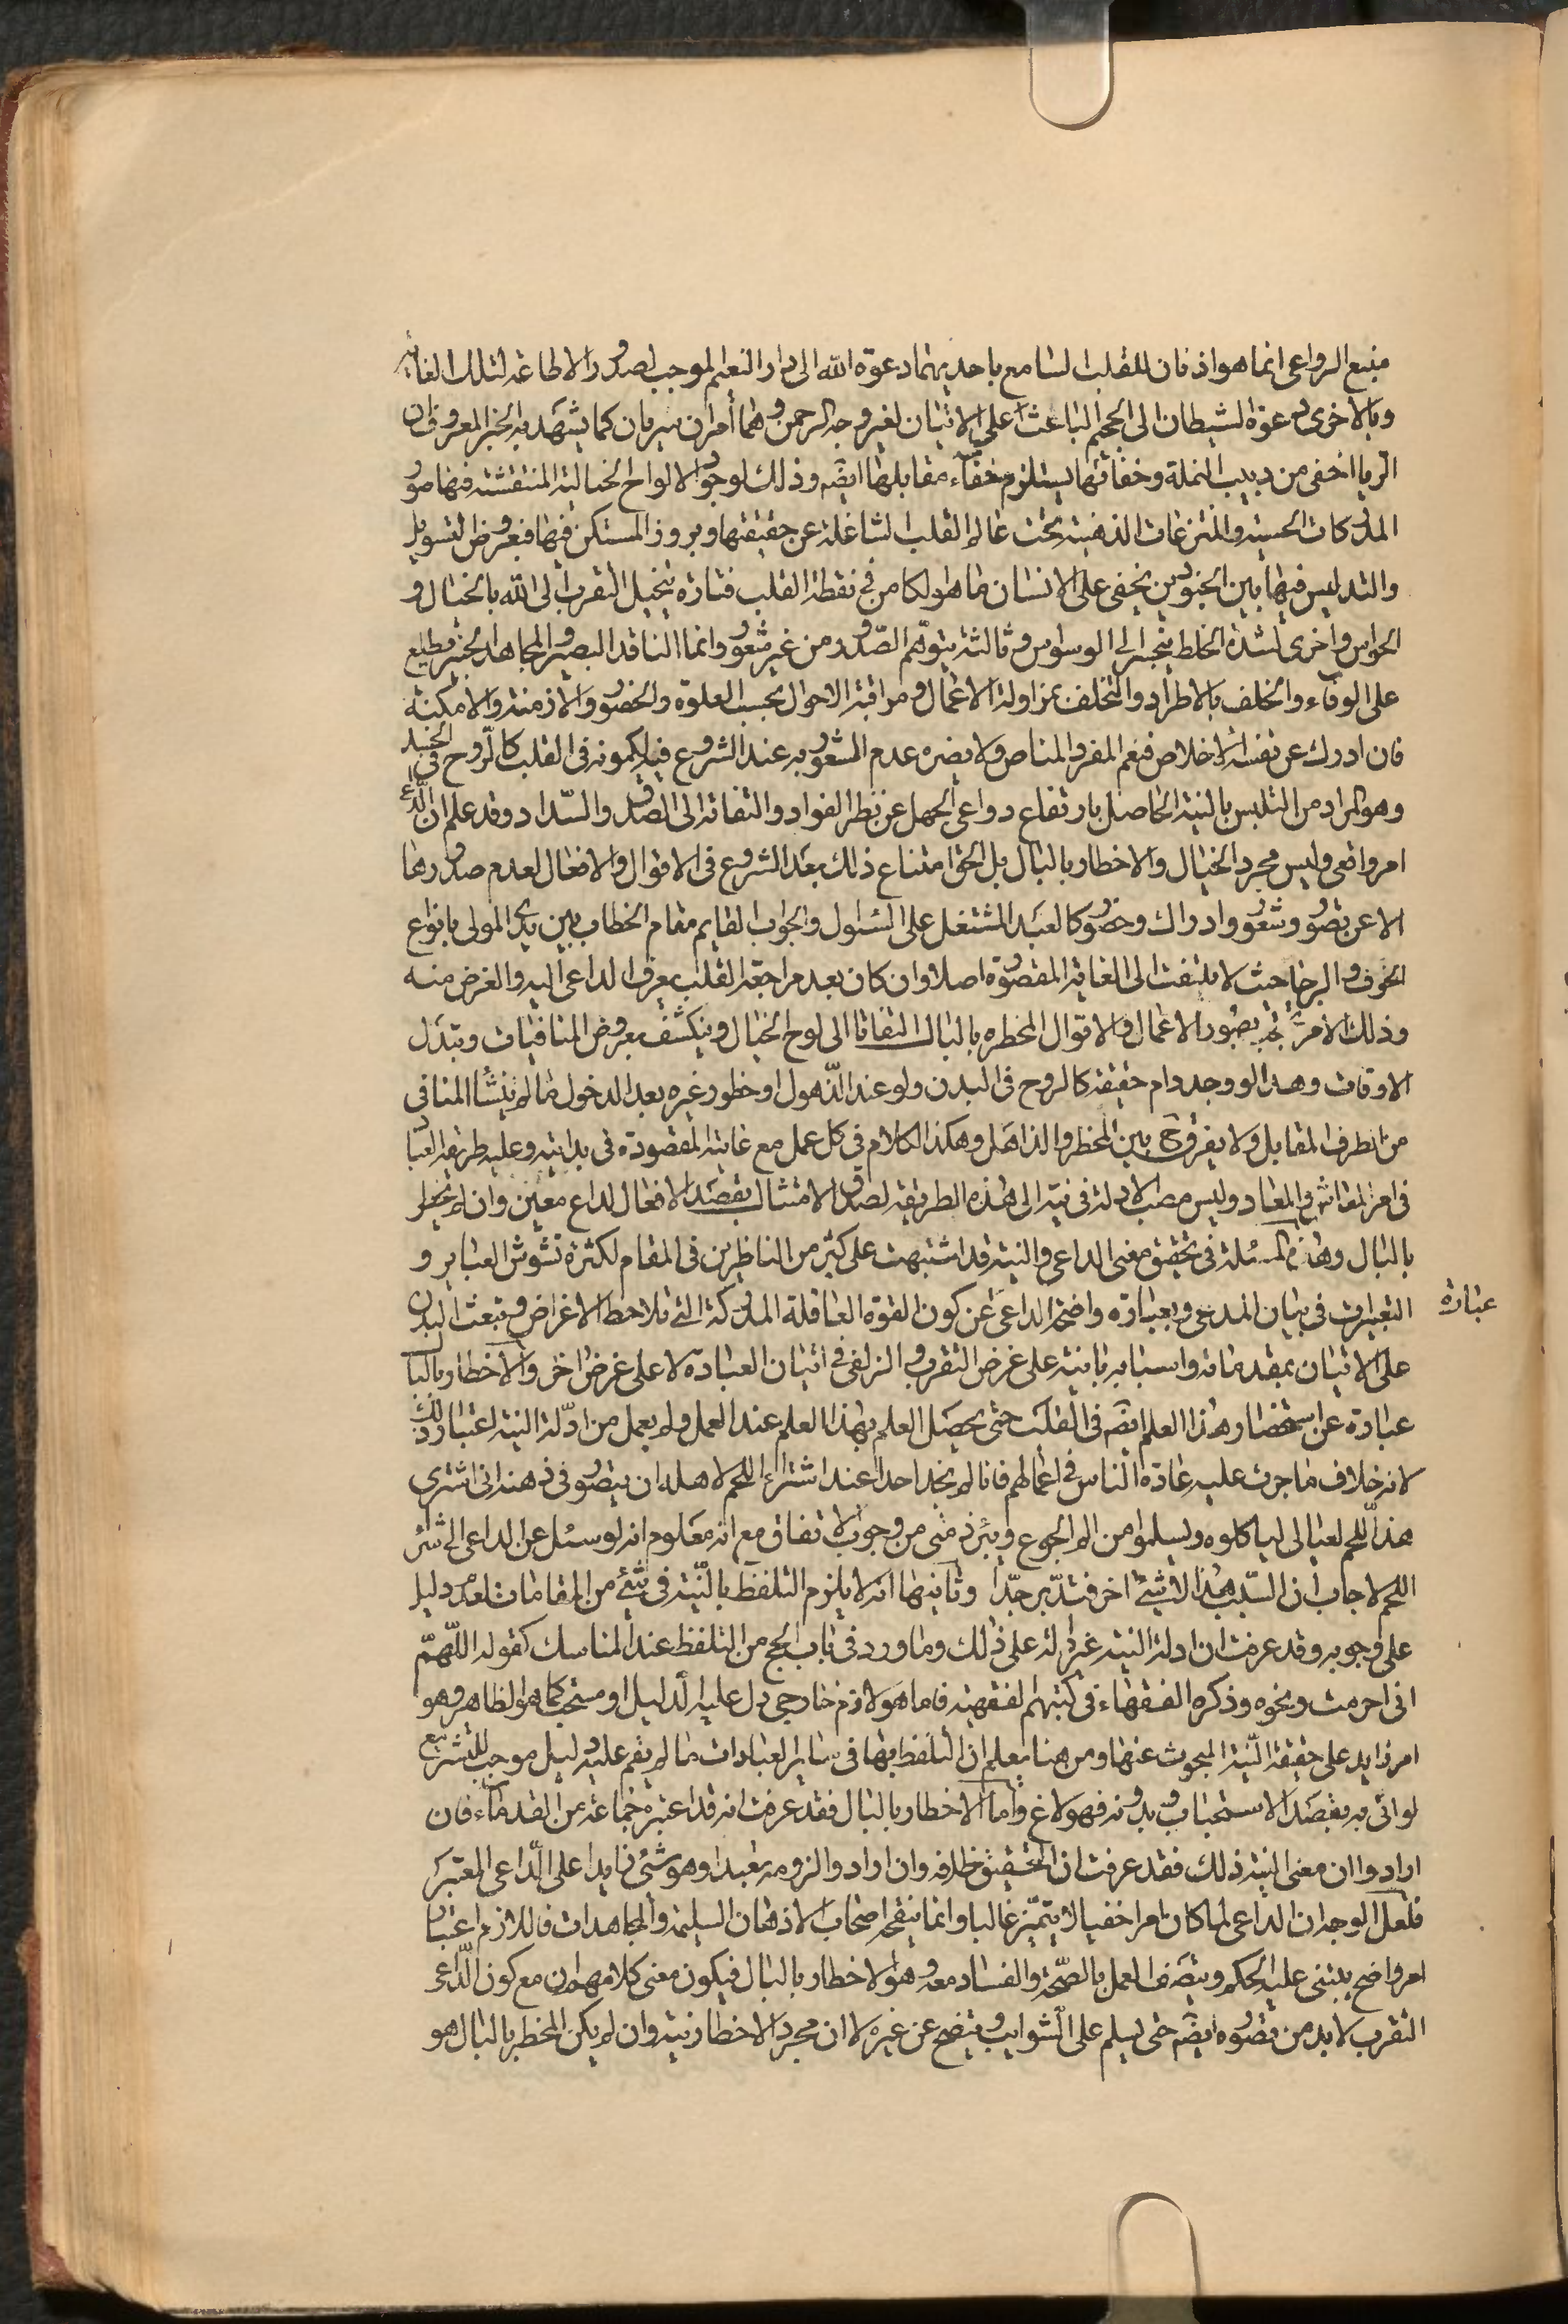 منبع الدواعی انما هو اذ فان للقلب لسامع باحدیهما دعوة الله الی دار النعیم الموجب لصدور الاطاعة لتلک الغایة
وبالاخری دعوة الشیطان الی الجحیم الباعث علی الاتیان لغیر وجه الرحمن وهما أمران سریان کما یشهد به الخبر المعروف ان
الریا اخفی من دبیب النملة وخفائها یستلزم خفآء مقابلها ایضه وذلک لوجود الالواح الخیالیة المنتقشة فیها صور
المدرکات الحسیة والمنتزعات الذهنیة تحت عالم القلب الشاغلة عن حقیقتها وبروز المستکن فیها فبعروض التسویل
والتدلیس فیها بین الجنودین یخفی علی الانسان ما هو الکامن فی نقطة القلب فتارة یتخیل التقرب الی الله بالخیال و
الحواس واخری لشدة الخلط ینجر الی الوسواس وثالثة یتوهم الصدور من غیر شعور وانما الناقد البصیر والمجاهد الخبیر مطلع
علی الوفآء والخلف بالاطراد والتخلف بمزاولة الاعمال ومراقبة الاحوال بحسب الخلوة والحضور والازمنة والامکنة
فان ادرک عن نفسه الاخلاص فنعم المفر والمناص ولا یضره عدم الشعور به عند الشروع فیه لکمونه فی القلب کالروح فی الجسد
وهو المراد من التلبس بالنیة الحاصل بارتفاع دواعی الجهل عن نظر الفواد والتفاته الی الصدق والسداد وقد علم ان الداعی
امر واقعی ولیس مجرد الخیال والاخطار بالبال بل الحق امتناع ذلک بعد الشروع فی الاقوال والافعال لعدم صدورها
الا عن تصور وشعور وادراک وحضور کالعبد المشتغل علی السئول والجواب القایم مقام الخطاب بین یدی المولی بانواع
الخوف والرجا حیث لا یلتفت الی الغایة المقصودة اصلا وان کان بعد مراجعة القلب یعرف الداعی الیه والغرض منه
وذلک لامر بصور الاعمال والاقوال المخطره بالبال التفاتا الی لوح الخیال وینکشف بعروض المنافیات وتبدل
الاوقات وهذا لو وجد دام حقیقة کالروح فی البدن ولو عند الذهول او خطور غیره بعد الدخول ما لم ینشأ المنافی
من الطرف المقابل ولا یفرق ح بین المخطر والذاهل وهکذا الکلام فی کل عمل مع غایته المقصودة فی بدایته وعلیه طریقة العباد
فی امر المعاش والمعاد ولیس مصب الادلة فی نیة الی هذه الطریقة لصدق الامتثال بقصد الافعال لداع معین وان لم یخطر
بالبال وهذه المسئلة فی تحقیق معنی الداعی والنیة قد اشتبهت علی کثیر من الناظرین فی المقام لکثرة تشوش العبایر و
التعبیرات فی بیان المدعی وبعبارة واضحة الداعی عن کون القوة العاقلة المدرکة التی تلاحظ الاغراض وتبعث البدن
عبارة
علی الاتیان بمقدماته واسبابه بانیة علی غرض التقرب والزلفی فی اتیان العبادة لا علی غرض اخر والاخطار بالبال
عبارة عن استحضار هذا العلم ایضه فی القلب حتی یحصل العلم بهذا العلم عند العمل ولم یعمل من ادلة النیة اعتبار ذلک
لانه خلاف ما جرت علیه عادة الناس فی اعمالهم فانا لم نجد احدا عند اشتراء اللحم لاهله ان یتصور فی ذهنه انی اشتری
هذا اللحم لعیالی لیاکلوه ویسلموا من الم الجوع ویبرء ذمتی من وجوب الانفاق مع انه معلوم انه لو سئل عن الداعی الی شراء
اللحم لاجاب ان السبب هذا لا شیئ اخر فتدبر جدا وثانیها انه لا یلزم التلفظ بالنیة فی شیئ من المقامات لعدم دلیل
علی وجوبه وقد عرفت ان ادلة النیة غیر دالة علی ذلک وما ورد فی باب الحج من التلفظ عند المناسک کقوله اللهم
انی احرمت ونحوه وذکره الفقهاء فی کتبهم الفقهیة فاما هو لازم خارجی دل علیه الدلیل او مستحب کما هو الظاهر وهو
امر زاید علی حقیقة النیة المبحوث عنها ومن هنا یعلم ان التلفظ بها فی سایر العبادات ما لم یقم علیه دلیل موجب للتشریع
لو اتی به بقصد الاستحباب وبدونه فهو لاغ واما الاخطار بالبال فقد عرفت انه قد اعتبره جماعة من القدمآء فان
ارادوا ان معنی النیة ذلک فقد عرفت ان التحقیق خلافه وان ارادوا لزومه تعبدا وهو شئ زایدا علی الداعی المعتبر
فلعل الوجه ان الداعی لما کان امرا خفیا لا یتمیز غالبا وانما ینقحه اصحاب الاذهان السلیمة والمجاهدات فاللازم اعتبار
امر واضح یبتنی علیه الحکم ویتصف العمل بالصحة والفساد معه وهو الاخطار بالبال فیکون معنی کلامهم ان مع کون الداعی
التقرب لا بد من تصوره ایضه حتی یسلم علی الشوایب ویتضح عن غیره لا ان مجرد الاخطار نیة وان لم یکن المخطر بالبال هو